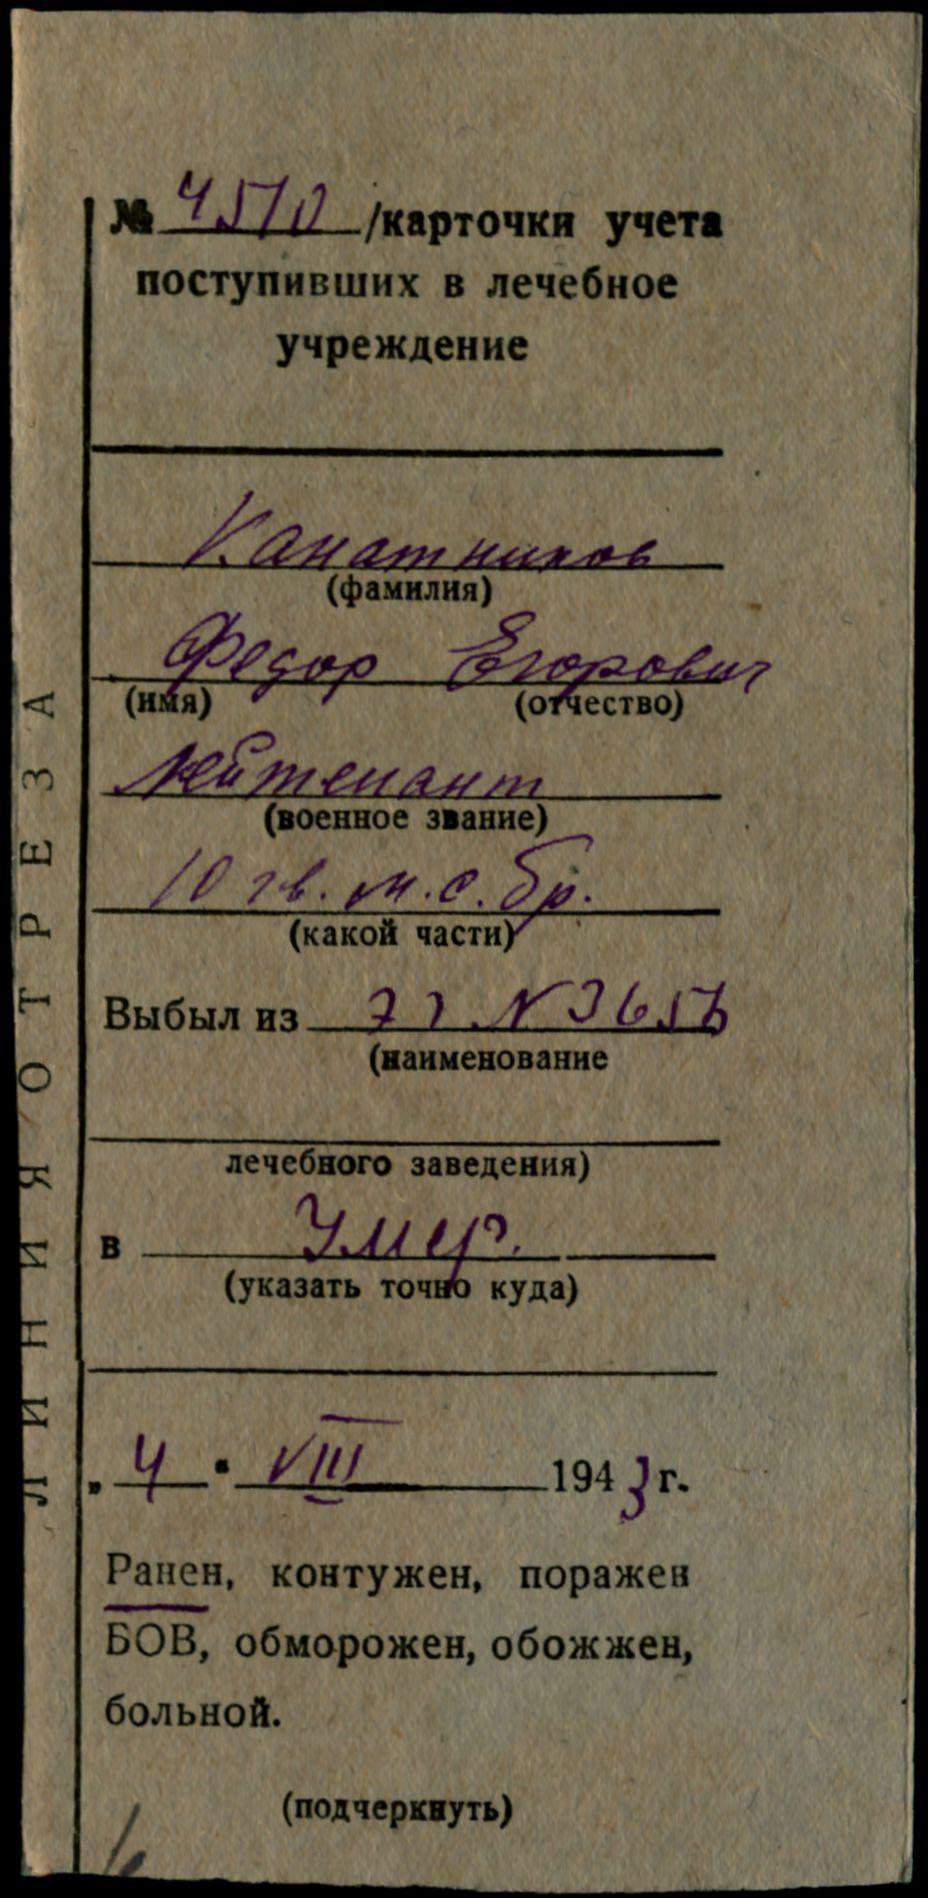 № 4510 /карточки учета
поступивших в лечебное
учреждение
Канатников
(фамилия)
Федор Егорович
(имя) (отчество)
лейтенант
(военное звание)
10 гв. м. с. бр.
(какой части)
Выбыл из ЭГ N 3656
(наименование
лечебного заведения)
в Умер.
(указать точно куда)
„ 4 " VIII 1943 г.
Ранен, контужен, поражен
БОВ, обморожен, обожжен,
больной.
(подчеркнуть)
ЛИНИЯ ОТРЕЗА